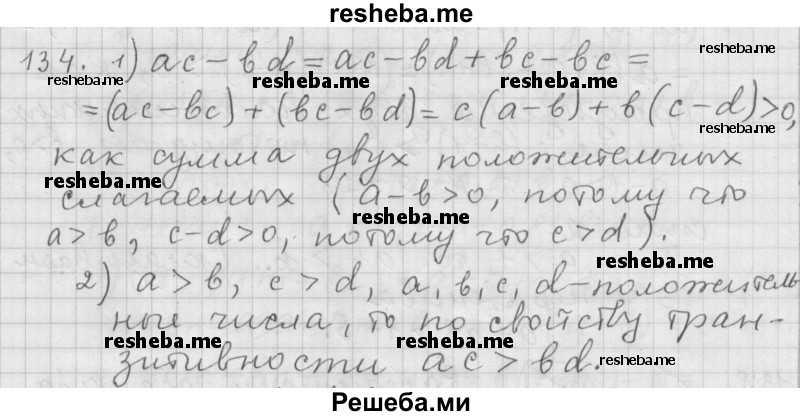 resheba.me
134. 1) ac - bd = ac - bd + bc - bc =
resheba.me
resheba.me
resheba.me
resheba.me
= (ac - bc) + (bc - bd) = c(a - b) + b(c - d) > 0,
resheba.me
как сумма двух положительных
resheba.me
слагаемых (a - b > 0, потому что
resheba.me
a > b, c - d > 0, потому что c > d).
resheba.me
2) a > b, c > d, a, b, c, d - положитель
ные числа, то по свойству тран-
resheba.me
resheba.me
зитивности ac > bd.
resheba.me
Решеба.ми